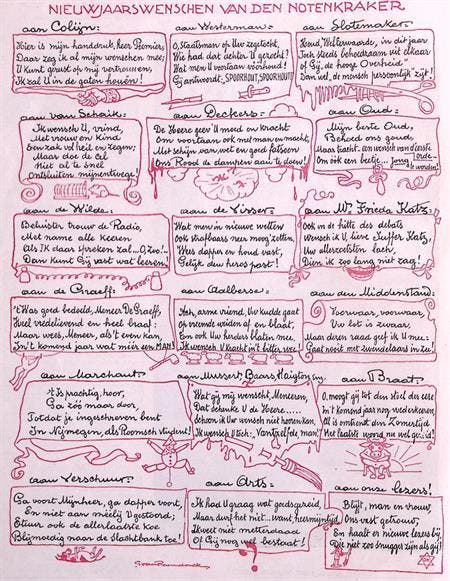 NIEUWJAARSWENSCHEN VAN DEN NOTENKRAKER
aan Colijn:
Hier is mijn handdruk, Heer Premier,
Daar zeg ik al mijn wenschen mee;
U kunt gerust op mij vertrouwen,
Ik zal U in de gaten houên!
aan Westerman:
O, Staatsman op Uw zegetocht,
Wie had dat achter U gezocht!
Wat men U voortaan voorhoud!
Gij antwoordt: SPOORHOUT, SPOORHOUT!
aan Slotemaker:
Houd, WelEerwaarde, in dit jaar
Toch steeds beheedraam uit elkaar
of Gij, de hooge Overheid
Dan wel, de mensch persoonlijk zijt!
aan van Schaik:
Ik wensch U, vriend,
Met vrouw en Kind
Een zak vol heil en zegen;
Maar doe de Cel
Niet al te snel
Ontsluiten mijnentwege!
aan Deckers:
De Heere geev' U moed en kracht
Om voortaan ook met man en macht,
Met schijn van wet en goed fatsoen
Ons Rood de dampen aan te doen!
aan Oud:
Mijn beste Oud,
't Kleed ons goud,
Maar tracht aan wensch van d'eerste
Om ook een beetje... Jong te worden!
aan de Wilde:
Beluister trouw de Radio,
Met name alle keeren
Als ik daar spreken zal... O, zoo!
Dan kunt Gij vast wat leeren!
aan de Visser:
Wat men in nieuwe wetten
ook strafbaars neer moog zetten,
Wees dapper en houd vast,
Gelijk den heros past!
aan Mr Frieda Katz:
Ook in de hitte des debats
Wensch ik U, lieve Juffer Katz,
Uw allerzoetsten lach,
Dien ik zoo lang niet zag!
aan de Graeff:
't Was goed bedoeld, Meneer De Graeff,
Heel vredelievend en heel braaf:
Maar wees, Meneer, als 't even kan,
In 't komend jaar wat méér een MAN!
aan Aalberse:
Ach, arme vriend, Uw kudde gaat
Op vreemde weiden af en blaat,
En ook Uw herders blaten mee:
Ik wensch U Kracht in 't bitter wee!
aan den Middenstand:
Voorwaar, voorwaar,
Uw lot is zwaar,
Maar deren raad gef ik U mee:
Gaat nooit met zwendelaars in zee!
aan Marchant:
't Is prachtig, hoor,
Ga zóó maar door,
Totdat je ingeschreven bent
In Nijmegen, als Roomsch student!
aan Mussert, Baars, Haighton, enz
Wat gij mij wenscht, Meneeren,
Dat schenke U de Heere.....
Schoon ik Uw wensch niet hooren kan,
Ik wensch U Zich: "Van 't zelfde, man!"
aan Braat:
O, moogt gij tot den stiel der eere
In 't komend jaar nog wederkeeren,
Al is omtrent den Zomertijd
Het laatste woord nu wel gezeid!
aan Verschuur:
Ga voort Mijnheer, ga dapper voort,
En niet aan méélij U gestoord;
Stuur ook de allerlaatste koe
Blijmoedig naar de Slachtbank toe!
aan Arts:
Ik had U graag wat goeds gezeid,
Maar durf het niet... want, heer mijn tijd
Ik weet niet metterdaad
Of Gij nog wel bestaat!
aan onze lezers!
Blijft, man en vrouw,
Ons vast getrouw,
En haalt er nieuwe lezers bij,
Die niet zoo snugger zijn als gij!